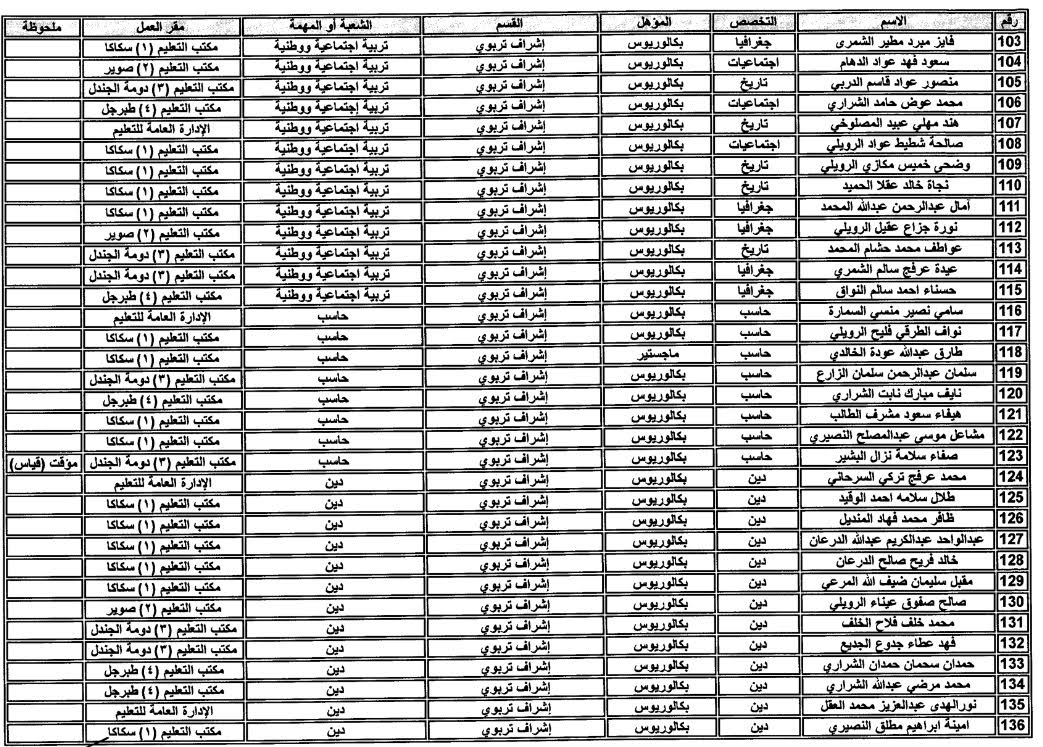 رقم الاسم التخصص المؤهل القسم الشعبة أو المهمة مقر العمل ملحوظة
103 فايز مبرد مطير الشمرى جغرافيا بكالوريوس إشراف تربوي تربية اجتماعية ووطنية مكتب التعليم (١) سكاكا
104 سعود فهد عواد الدهام اجتماعيات بكالوريوس إشراف تربوي تربية اجتماعية ووطنية مكتب التعليم (٢) صوير
105 منصور عواد قاسم الدربي تاريخ بكالوريوس إشراف تربوي تربية اجتماعية ووطنية مكتب التعليم (٣) دومة الجندل
106 محمد عوض حامد الشراري اجتماعيات بكالوريوس إشراف تربوي تربية اجتماعية ووطنية مكتب التعليم (٤) طبرجل
107 هند مهلي عبيد المصلوخي تاريخ بكالوريوس إشراف تربوي تربية اجتماعية ووطنية الإدارة العامة للتعليم
108 صالحة شطيط عواد الرويلي اجتماعيات بكالوريوس إشراف تربوي تربية اجتماعية ووطنية مكتب التعليم (١) سكاكا
109 وضحى خميس مكازي الرويلي تاريخ بكالوريوس إشراف تربوي تربية اجتماعية ووطنية مكتب التعليم (١) سكاكا
110 نجاة خالد عقلا الحميد تاريخ بكالوريوس إشراف تربوي تربية اجتماعية ووطنية مكتب التعليم (١) سكاكا
111 أمال عبدالرحمن عبدالله المحمد جغرافيا بكالوريوس إشراف تربوي تربية اجتماعية ووطنية مكتب التعليم (١) سكاكا
112 نورة جزاع عقيل الرويلي جغرافيا بكالوريوس إشراف تربوي تربية اجتماعية ووطنية مكتب التعليم (٢) صوير
113 عواطف محمد حشام المحمد تاريخ بكالوريوس إشراف تربوي تربية اجتماعية ووطنية مكتب التعليم (٣) دومة الجندل
114 عيدة عرفج سالم الشمري جغرافيا بكالوريوس إشراف تربوي تربية اجتماعية ووطنية مكتب التعليم (٣) دومة الجندل
115 حسناء احمد سالم النواق جغرافيا بكالوريوس إشراف تربوي تربية اجتماعية ووطنية مكتب التعليم (٤) طبرجل
116 سامي نصير منسي السمارة حاسب بكالوريوس إشراف تربوي حاسب الإدارة العامة للتعليم
117 نواف الطرقي فليح الرويلي حاسب بكالوريوس إشراف تربوي حاسب مكتب التعليم (١) سكاكا
118 طارق عبدالله عودة الخالدي حاسب ماجستير إشراف تربوي حاسب مكتب التعليم (١) سكاكا
119 سلمان عبدالرحمن سلمان الزارع حاسب بكالوريوس إشراف تربوي حاسب مكتب التعليم (٣) دومة الجندل
120 نايف مبارك نابت الشراري حاسب بكالوريوس إشراف تربوي حاسب مكتب التعليم (٤) طبرجل
121 هيفاء سعود مشرف الطالب حاسب بكالوريوس إشراف تربوي حاسب مكتب التعليم (١) سكاكا
122 مشاعل موسي عبدالمصلح النصيري حاسب بكالوريوس إشراف تربوي حاسب مكتب التعليم (١) سكاكا
123 صفاء سلامة نزال البشير حاسب بكالوريوس إشراف تربوي حاسب مكتب التعليم (٣) دومة الجندل مؤقت (قياس)
124 محمد عرفج تركي السرحاني دين بكالوريوس إشراف تربوي دين الإدارة العامة للتعليم
125 طلال سلامه احمد الوقيد دين بكالوريوس إشراف تربوي دين مكتب التعليم (١) سكاكا
126 ظافر محمد فهاد المنديل دين بكالوريوس إشراف تربوي دين مكتب التعليم (١) سكاكا
127 عبدالواحد عبدالكريم عبدالله الدرعان دين بكالوريوس إشراف تربوي دين مكتب التعليم (١) سكاكا
128 خالد فريح صالح الدرعان دين بكالوريوس إشراف تربوي دين مكتب التعليم (١) سكاكا
129 مقبل سليمان ضيف الله المرعي دين بكالوريوس إشراف تربوي دين مكتب التعليم (١) سكاكا
130 صالح صفوق عيناء الرويلي دين بكالوريوس إشراف تربوي دين مكتب التعليم (٢) صوير
131 محمد خلف فلاح الخلف دين بكالوريوس إشراف تربوي دين مكتب التعليم (٣) دومة الجندل
132 فهد عطاء جدوع الجديع دين بكالوريوس إشراف تربوي دين مكتب التعليم (٣) دومة الجندل
133 حمدان سحمان حمدان الشراري دين بكالوريوس إشراف تربوي دين مكتب التعليم (٤) طبرجل
134 محمد مرضي عبدالله الشراري دين بكالوريوس إشراف تربوي دين مكتب التعليم (٤) طبرجل
135 نورالهدى عبدالعزيز محمد العقل دين بكالوريوس إشراف تربوي دين الإدارة العامة للتعليم
136 امينة ابراهيم مطلق النصيري دين بكالوريوس إشراف تربوي دين مكتب التعليم (١) سكاكا